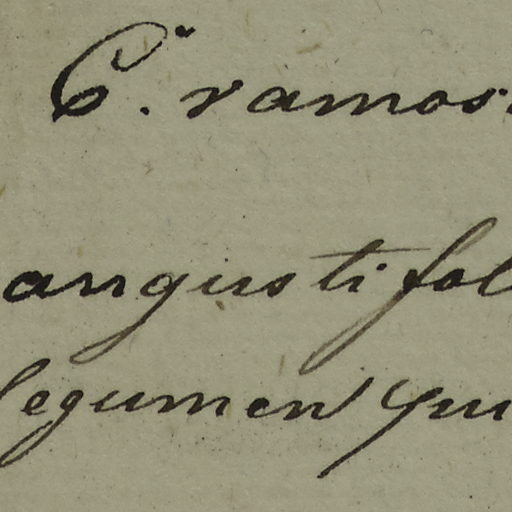 C. ramos
angustifol
legumen